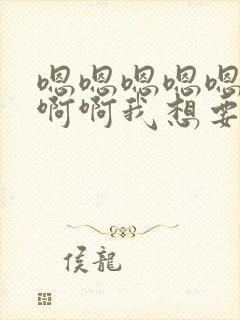 嗯嗯嗯嗯嗯
啊啊我想要
侯龍